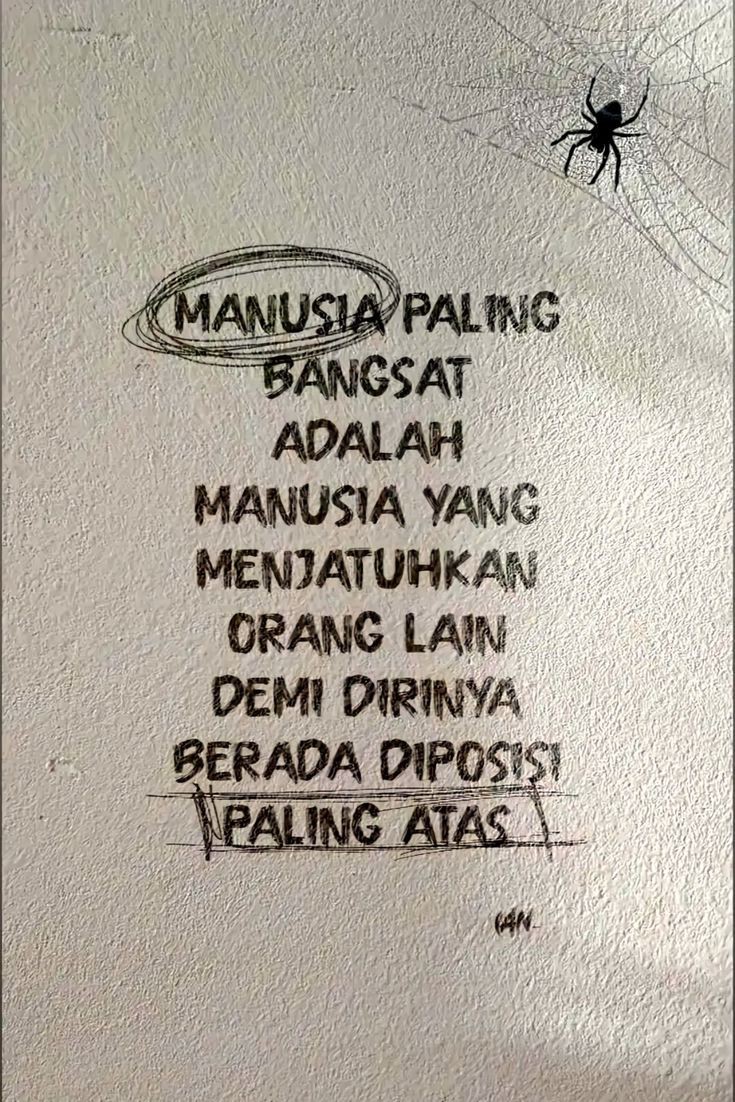 MANUSIA PALING
BANGSAT
ADALAH
MANUSIA YANG
MENJATUHKAN
ORANG LAIN
DEMI DIRINYA
BERADA DIPOSISI
PALING ATAS